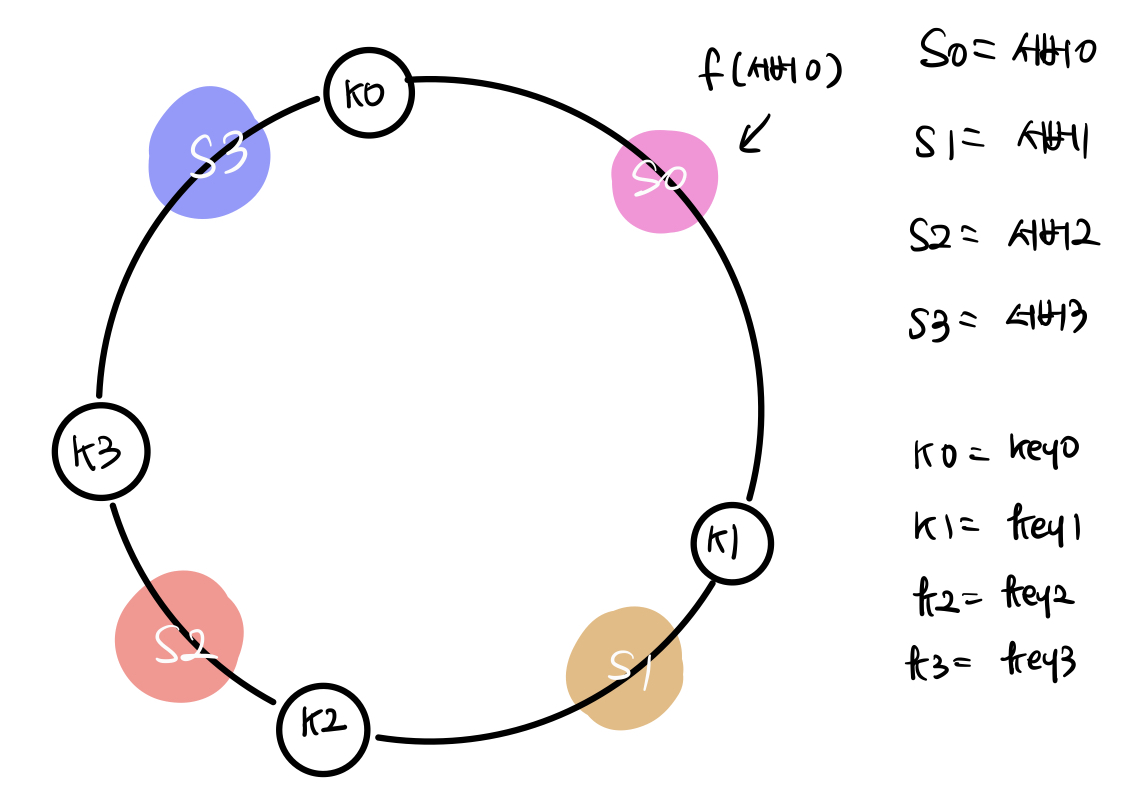 K0
S3
f(서버0)
S0
K3
K1
S2
S1
K2
S0= 서버0
S1= 서버1
S2= 서버2
S3= 서버3
K0= key0
K1= key1
k2= key2
k3= key3